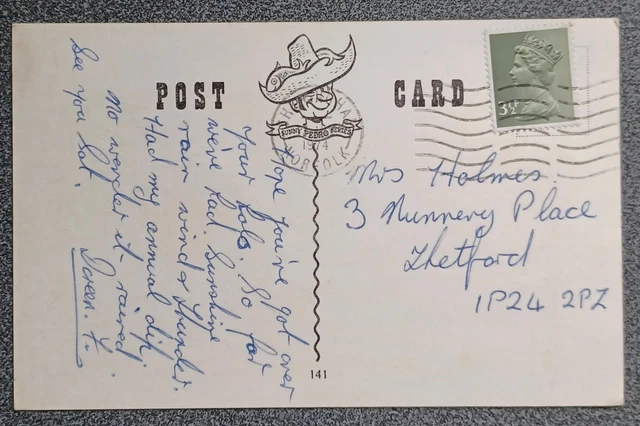 POST CARD
SUNNY PEDRO SERIES
1974
NORFOLK
3½
Hope you've got over
your hols. So far
we've had Sunshine
rain wind & thunder.
Had my annual dip.
No wonder it rained!
See you Sat.
Doreen.
Mrs Holmes.
3 Nunnery Place
Thetford
IP24 2PZ
141